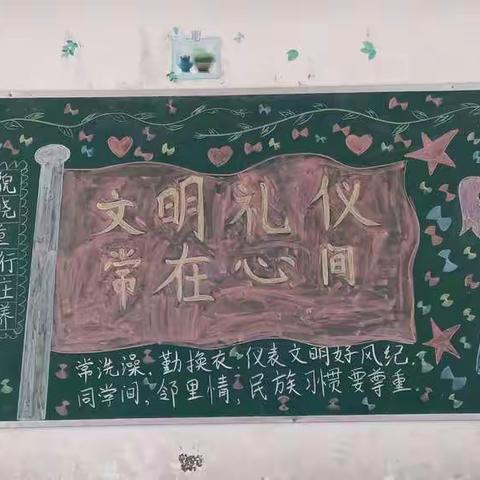 文明礼仪
常在心间
常洗澡，勤换衣，仪表文明好风纪，
同学间，邻里情，民族习惯要尊重。